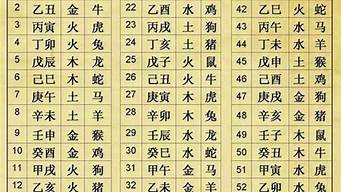 2 乙丑 金 牛 22 乙酉 水 鸡 42 乙巳 火 蛇
3 丙寅 火 虎 23 丙戌 土 狗 43 丙午 水 马
4 丁卯 火 兔 24 丁亥 土 猪 44 丁未 水 羊
5 戊辰 木 龙 25 戊子 火 鼠 45 戊申 土 猴
6 己巳 木 蛇 26 己丑 火 牛 46 己酉 土 鸡
7 庚午 土 马 27 庚寅 木 虎 47 庚戌 金 狗
8 辛未 土 羊 28 辛卯 木 兔 48 辛亥 金 猪
9 壬申 金 猴 29 壬辰 水 龙 49 壬子 木 鼠
10 癸酉 金 鸡 30 癸巳 水 蛇 50 癸丑 木 牛
11 甲戌 火 狗 31 甲午 金 马 51 甲寅 水 虎
12 乙亥 火 猪 32 乙未 金 羊 52 乙卯 水 兔